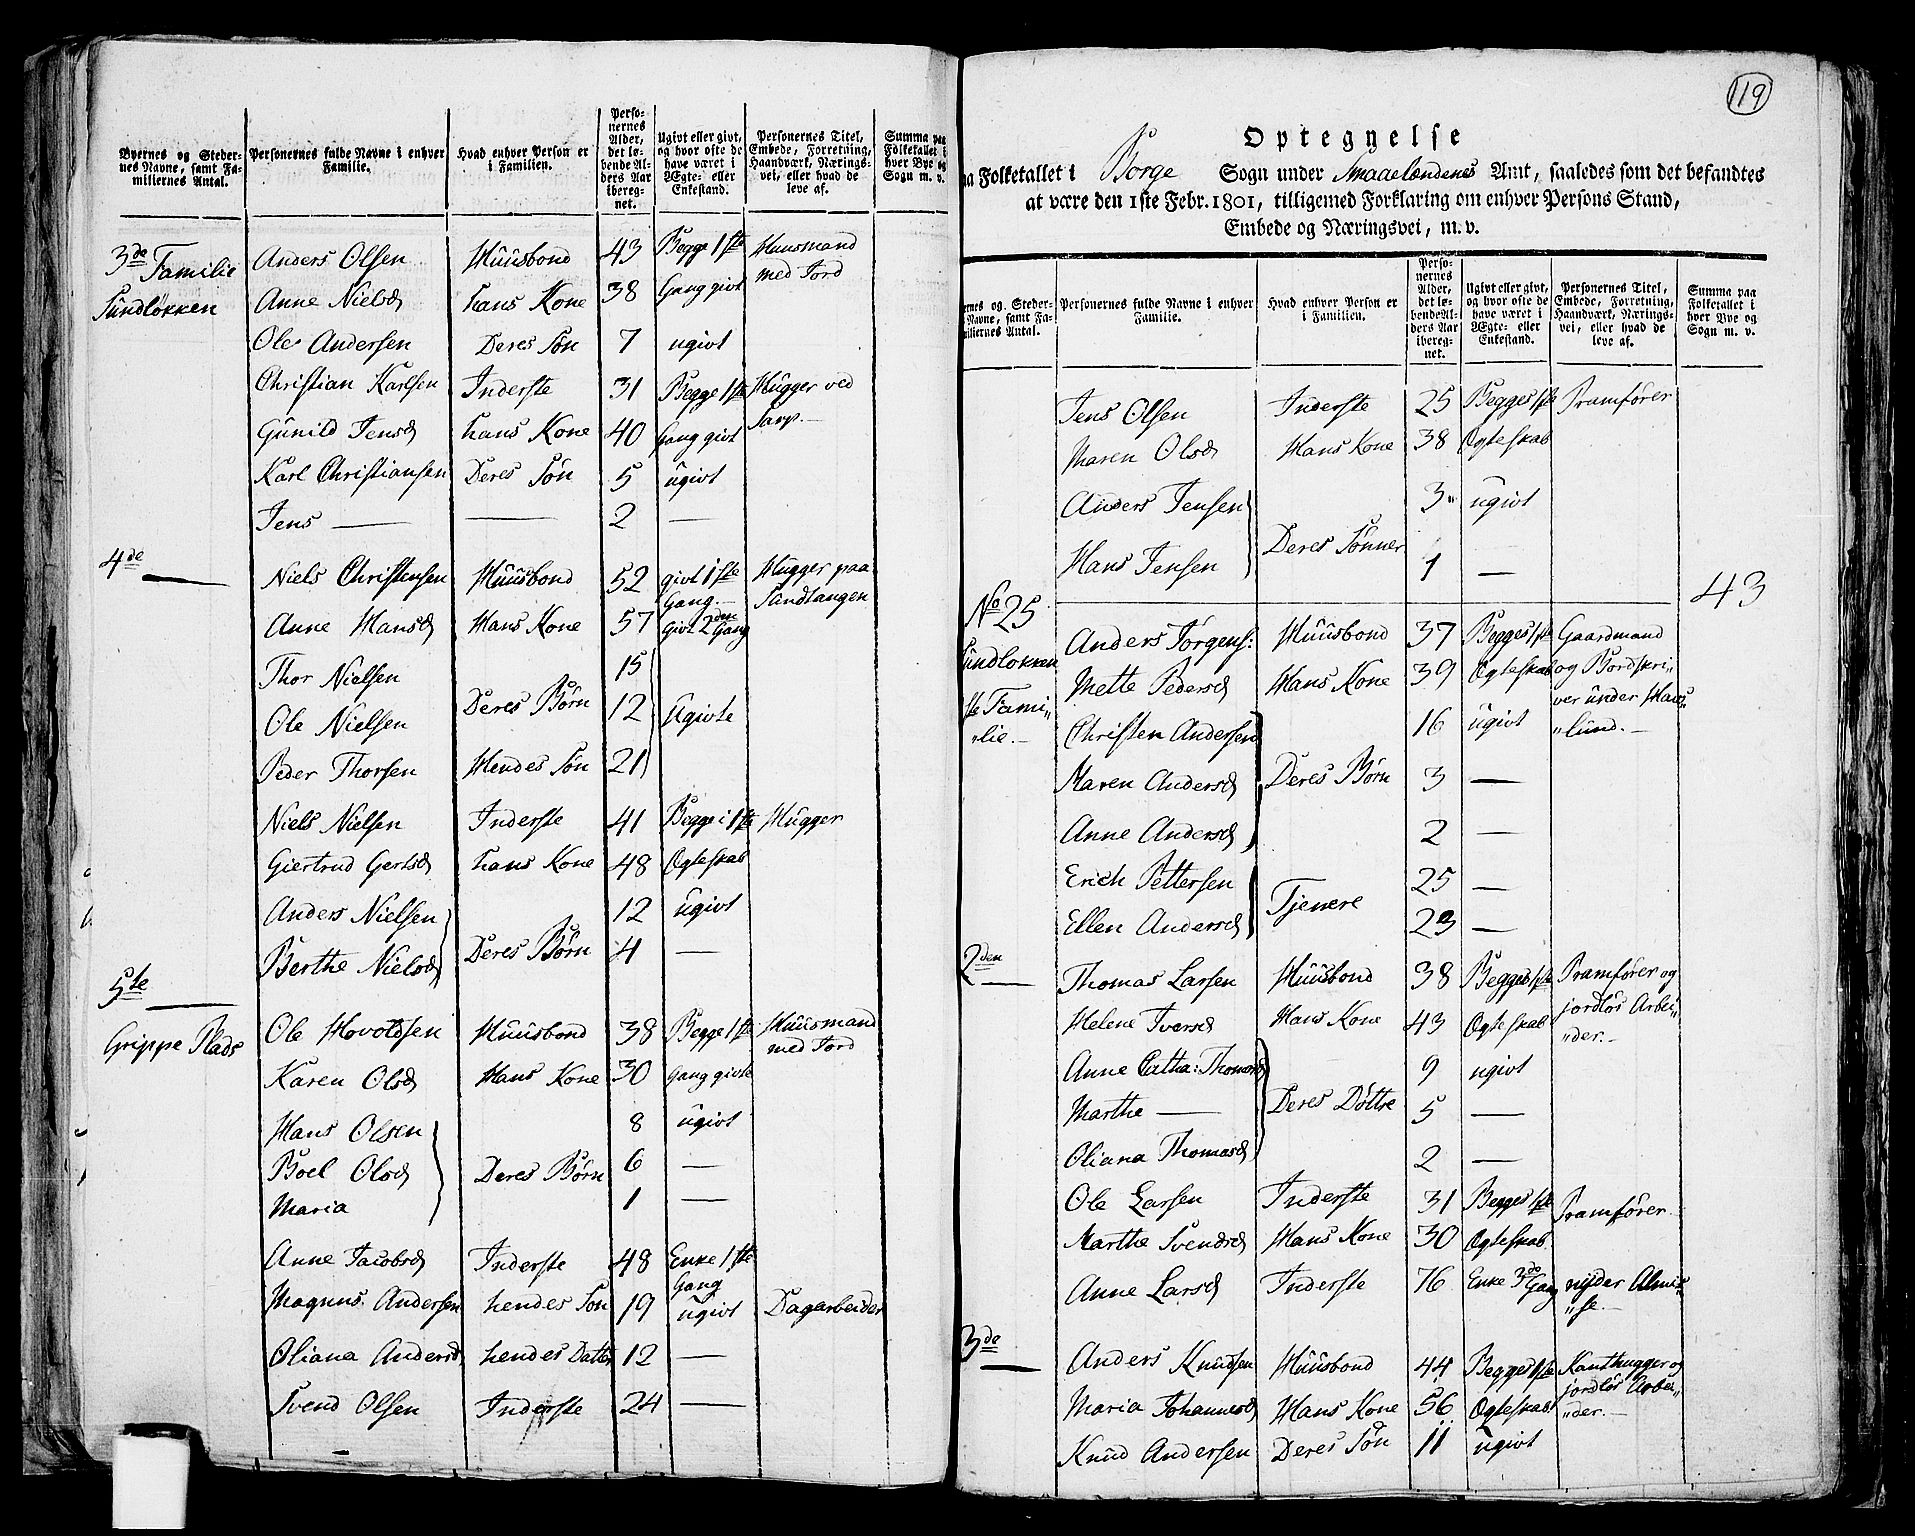 Byernes og Steder-
nes Navne, samt Fa-
miliernes Antal.
Personernes fulde Navne i enhver
Familie.
Hvad enhver Person er
i Familien.
Perso-
nernes
Alder,
det lø-
bende Al-
ders Aar
ibereg-
net.
Ugivt eller givt,
og hvor ofte de
have været i
Ægte- eller
Enkestand.
Personernes Titel,
Embede, Forretning,
Haandværk, Nærings-
vei, eller hvad de
leve af.
Summa paa
Folketallet i
hver Bye og
Sogn m. v.
3de Familie
Sundløkken
Anders Olsen Huusbond 43 Begge 1ste Huusmand
med Jord
Anne Nielsd hans Kone 38 Gang givt
Ole Andersen Deres Søn 7 ugivt
Christian Karlsen Inderste 31 Begge 1ste Hugger ved
Sarp.
Gunild Jensd hans Kone 40 Gang givt
Karl Christiansen Deres Søn 5 ugivt
Jens — — 2 —
4de —
Niels Christensen Huusbond 52 givt 1ste
Gang. Hugger paa
Sandtangen
Anne Hansd Hans Kone 57 Givt 2den Gang
Thor Nielsen 15
Ole Nielsen Deres Børn 12 Ugivte
Peder Thorsen Hendes Søn 21
Niels Nielsen Inderste 41 Begge i 1ste Hugger
Giertrud Gertsd hans Kone 48 Ægteskab
Anders Nielsen 12 ugivt
Berthe Nielsd Deres Børn 4 —
5te —
Grippe Plads
Ole Hovoldsen Huusbond 38 Begge 1ste Huusmand
med Jord
Karen Olsd Hans Kone 30 Gang givte
Hans Olsen 8 ugivt
Boel Olsd Deres Børn 6 —
Maria 1 —
Anne Jacobsd Inderste 48 Enke 1ste
Gang
Magnus Andersen hendes Søn 19 ugivt Dagarbeider
Oliana Andersd hendes Datter 12 —
Svend Olsen Inderste 24 —
119
Optegnelse
paa Folketallet i Borge Sogn under Smaaelændenes Amt, saaledes som det befandtes
at være den 1ste Febr. 1801, tilligemed Forklaring om enhver Persons Stand,
Embede og Næringsvei, m. v.
ernes og Steder-
Navne, samt Fa-
miliernes Antal.
Personernes fulde Navne i enhver
Familie.
Hvad enhver Person er
i Familien.
Perso-
nernes
Alder,
det lø-
bende Al-
ders Aar
ibereg-
net.
Ugivt eller givt,
og hvor ofte de
have været i
Ægte- eller
Enkestand.
Personernes Titel,
Embede, Forretning,
Haandværk, Nærings-
vei, eller hvad de
leve af.
Summa paa
Folketallet i
hver Bye og
Sogn m. v.
Jens Olsen Inderste 25 Begges 1ste Pramfører
Maren Olsd Hans Kone 38 Ægteskab
Anders Jensen 3 ugivt
Hans Jensen Deres Sønner 1 —
43
No 25
Sundløkken
1ste Fami-
lie.
Anders Jørgens: Huusbond 37 Begges 1ste Gaardmand
Mette Pedersd Hans Kone 39 Ægteskab og Bordskri-
ver under Haf-
lund.
Christen Andersen 16 ugivt
Maren Andersd Deres Børn 3 —
Anne Andersd 2 —
Erich Pettersen Tjenere 25 —
Ellen Andersd 23 —
2den —
Thomas Larsen Huusbond 38 Begges 1ste Pramfører og
Helene Iversd Hans Kone 43 Ægteskab jordløs Arbei-
der.
Anne Catha: Thomasd 9 ugivt
Marthe — Deres Døttre 5 —
Oliana Thomasd 2 —
Ole Larsen Inderste 31 Begges 1ste Pramfører
Marthe Svendsd Hans Kone 30 Ægteskab
Anne Larsd Inderste 76 Enke 3de Gang nyder Almis-
se.
3de —
Anders Knudsen Huusbond 44 Begges 1ste Kanthugger og
Maria Johannesd Hans Kone 56 Ægteskab jordløs Arbei-
der.
Knud Andersen Deres Søn 11 ugivt